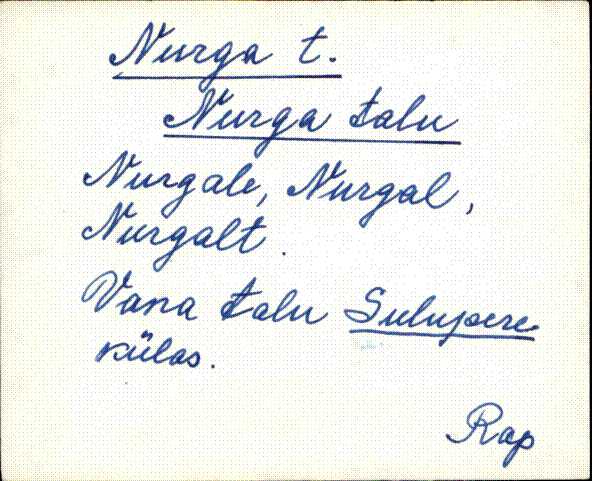 Nurga t.
Nurga talu
Nurgale, Nurgal,
Nurgalt.
Vana talu Sulupere
külas.
Rap